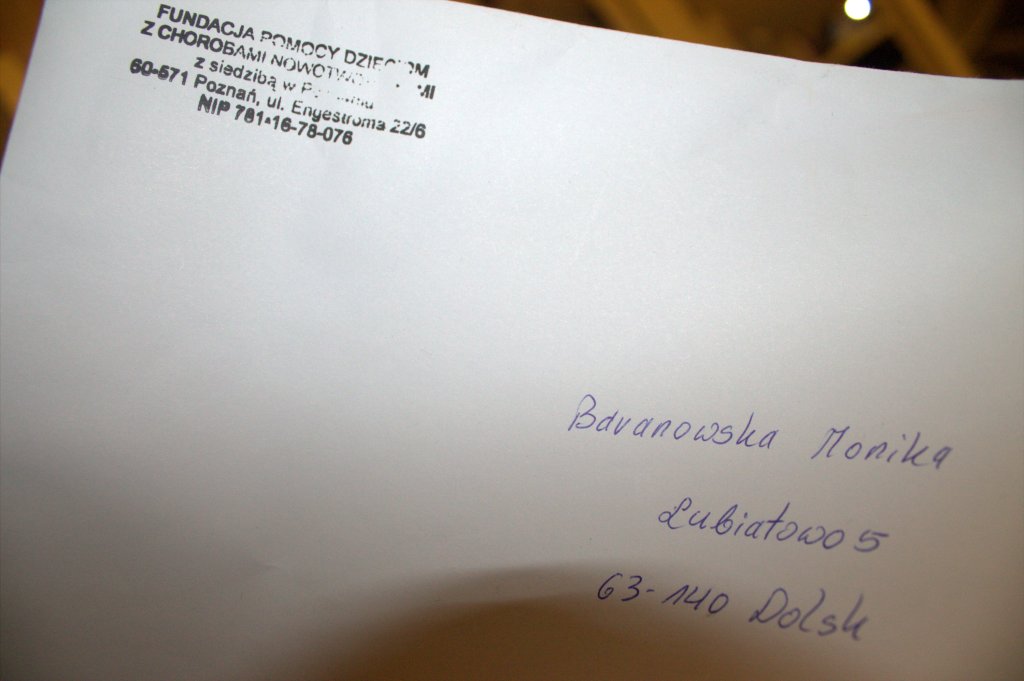 FUNDACJA POMOCY DZIECIOM
Z CHOROBAMI
z siedzibą w
60-571 Poznań, ul. Engestroma 22/6
NIP 781-16-78-076
Baranowska Monika
Lubiatowo 5
63-140 Dolsk